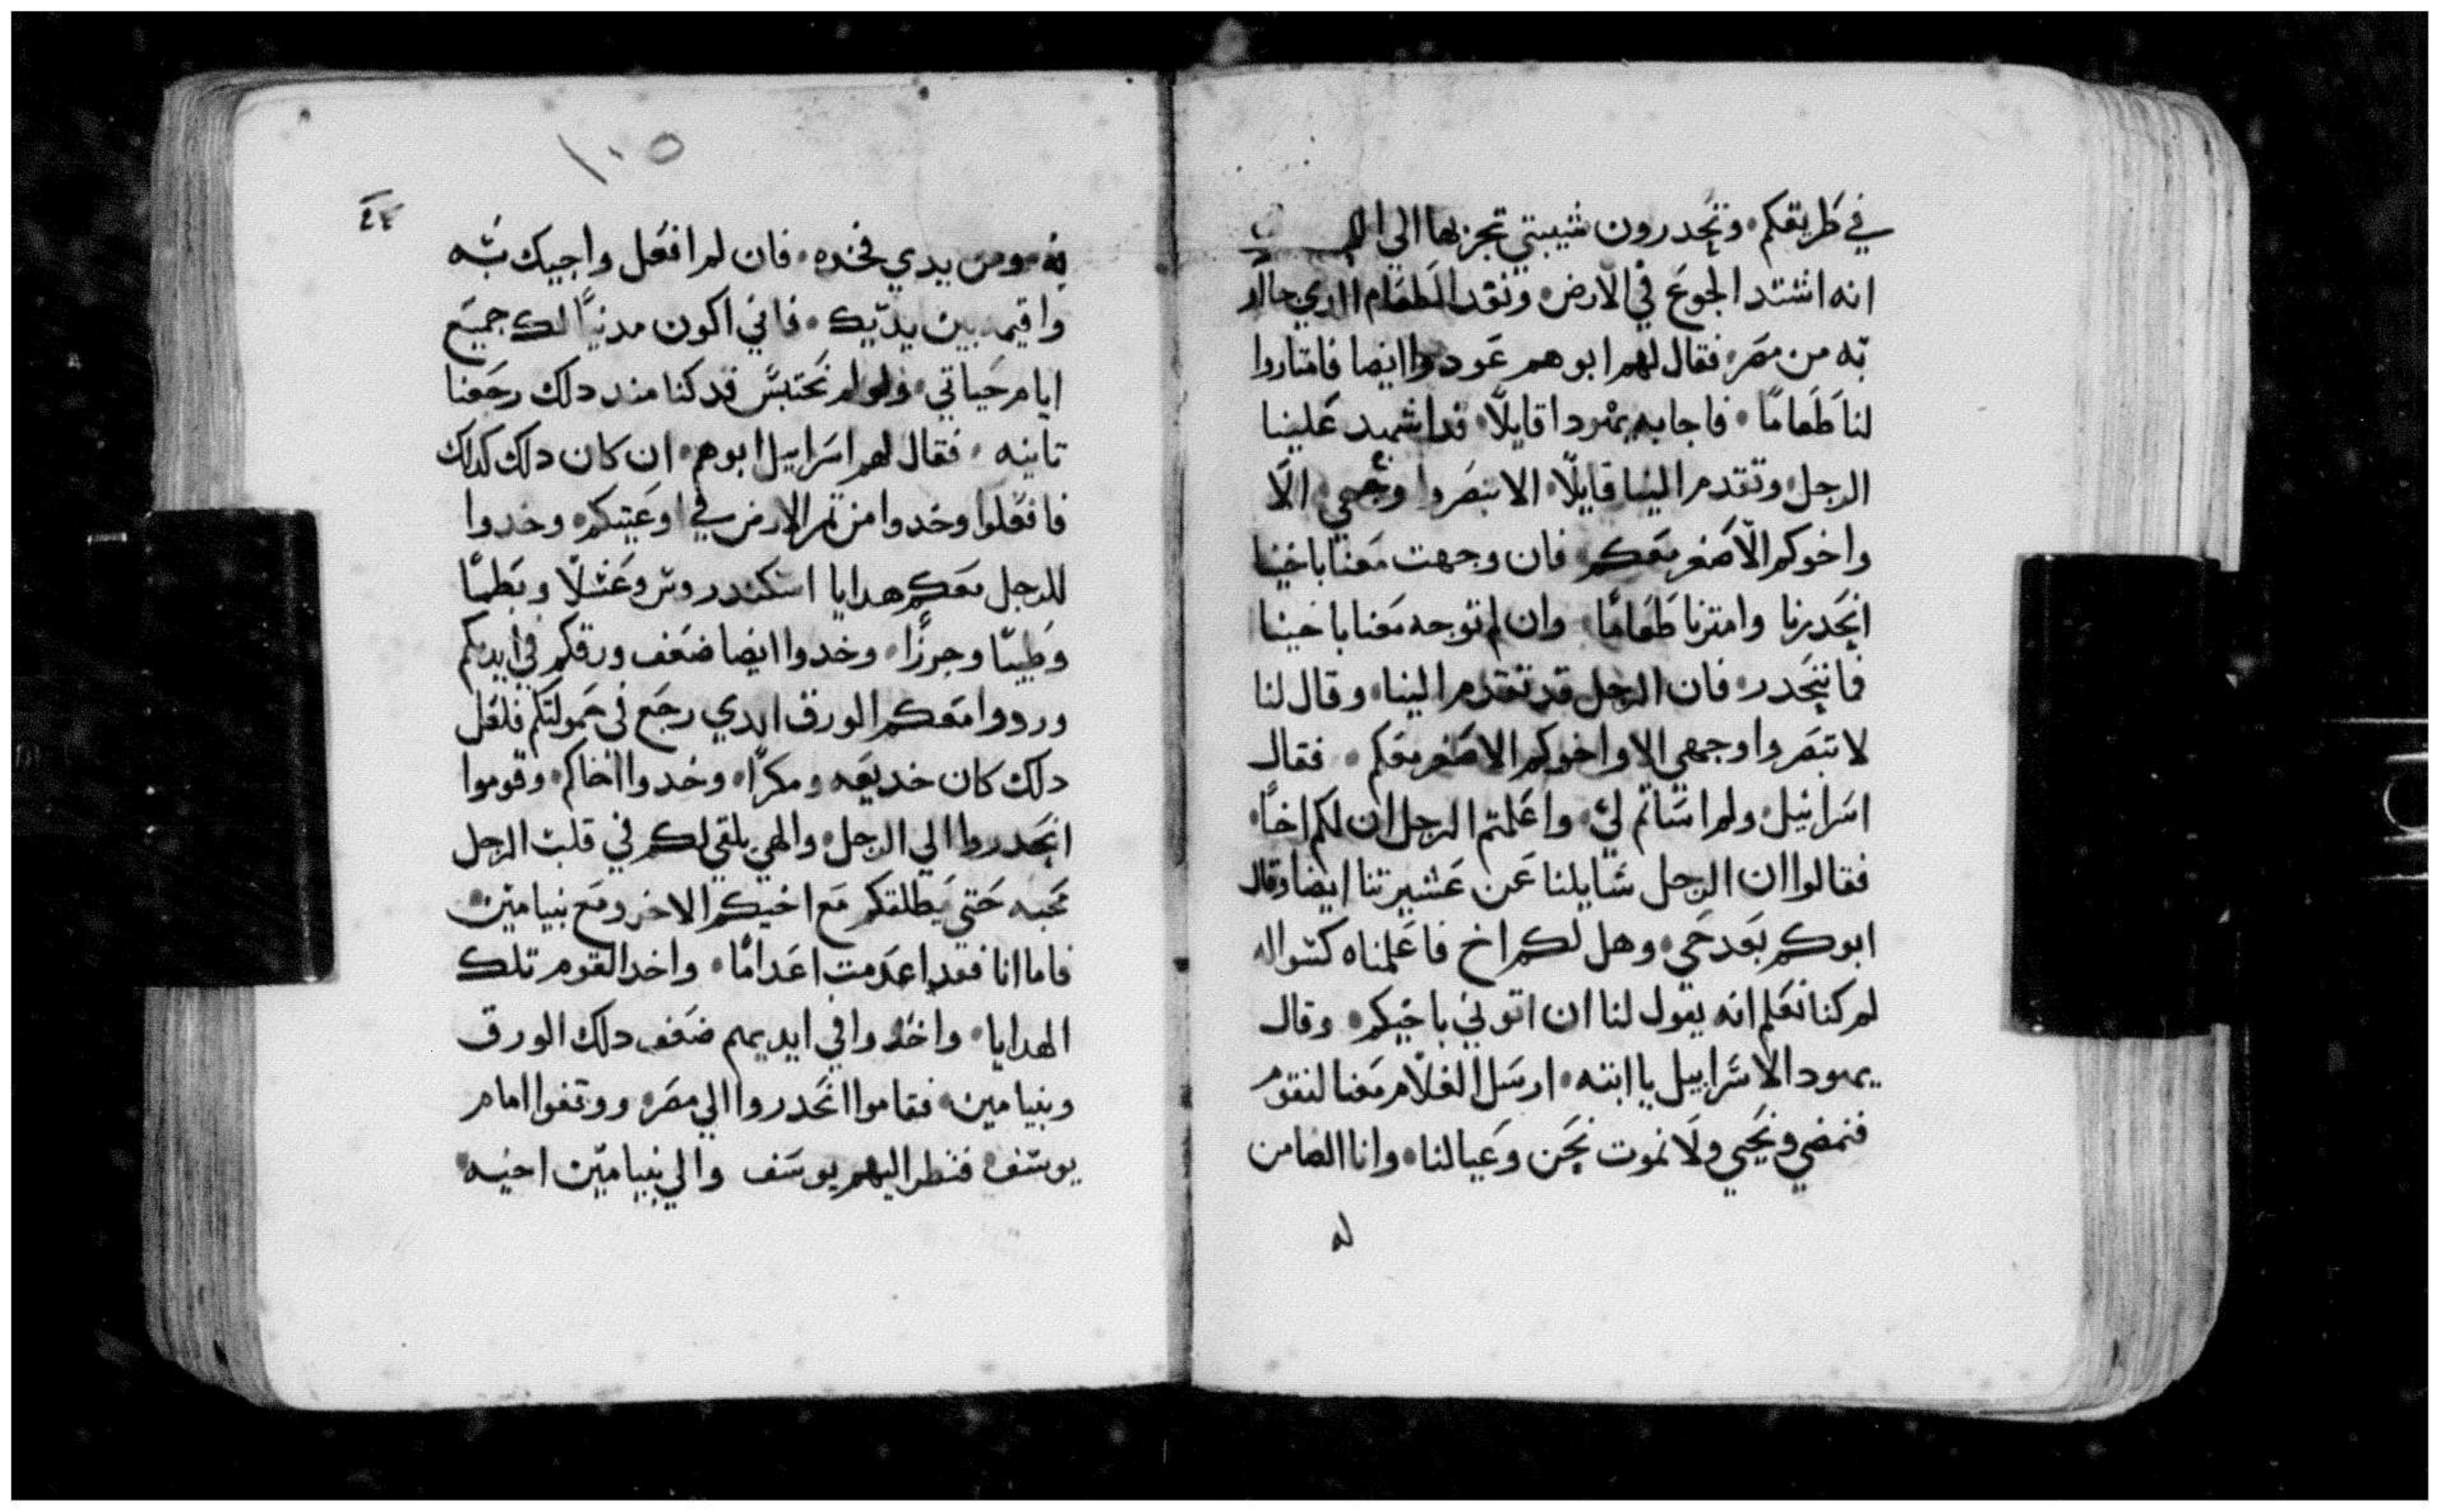 في طريقكم. وتحدرون شيبتي تجزبها الي
انه اشتد الجوع في الارض. ونفد الطعام الدي جاا
به من مصر. فقال لهم ابوهم عودوا ايضا فامتاروا
لنا طعامًا. فاجابه يهودا قايلًا. قد اشهد علينا
الرجل. وتقدم الينا قايلًا. الا تبصروا وجهي. الا
واخوكم الاصغر معكم. فان وجهت معنا باخينا
انحدرنا وامترنا طعامًا. وان لم توجه معنا باخينا
فما ننحدر. فان الرجل قد تقدم الينا. وقال لنا
لا تبصروا وجهي الا واخوكم الاصغر معكم. فقال
اسراييل. ولم اساتم لي. واعلمتم الرجل ان لكم اخًا.
فقالوا ان الرجل سايلنا عن عشيرتنا ايضا وقال
ابوكم بعد حي. وهل لكم اخ فاعلمناه كسواله
لم كنا نعلم انه يقول لنا ان اتوني باخيكم. وقال
يهودا لاسراييل يا ابته. ارسل الغلام معنا لنقوم
فنمضي ونحيي ولا نموت نحن وعيالنا. وانا الضامن
له
١٠٥
به ومن يدي فخده. فان لم افعل واجيك به
واقيمه بين يديك. فاني اكون مدنيًا لك جميع
ايام حياتي. ولو لم نحتبس قد كنا مند دلك رجعنا
تانيه. فقال لهم اسراييل ابوهم. ان كان دلك كدلك
فافعلوا وخدوا من تمر الارض في اوعيتكم. وخدوا
للرجل معكم هدايا اسكندروس وعسلًا وبطمًا
وطيبًا وجرزًا. وخدوا ايضا ضعف ورقكم في ايديكم
وردوا معكم الورق الدي رجع في حمولتكم فلعل
دلك كان خديعه ومكرًا. وخدوا اخاكم. وقوموا
انحدروا الي الرجل. والهي يلقي لكم في قلب الرجل
محبه حتي يطلقكم مع اخيكم الاخر ومع بنيامين.
فاما انا فقد اعدمت اعدامًا. واخد القوم تلك
الهدايا. واخدوا في ايديهم ضعف دلك الورق
وبنيامين. فقاموا انحدروا الي مصر. ووقفوا امام
يوسف. فنظر اليهم يوسف والي بنيامين اخيه.